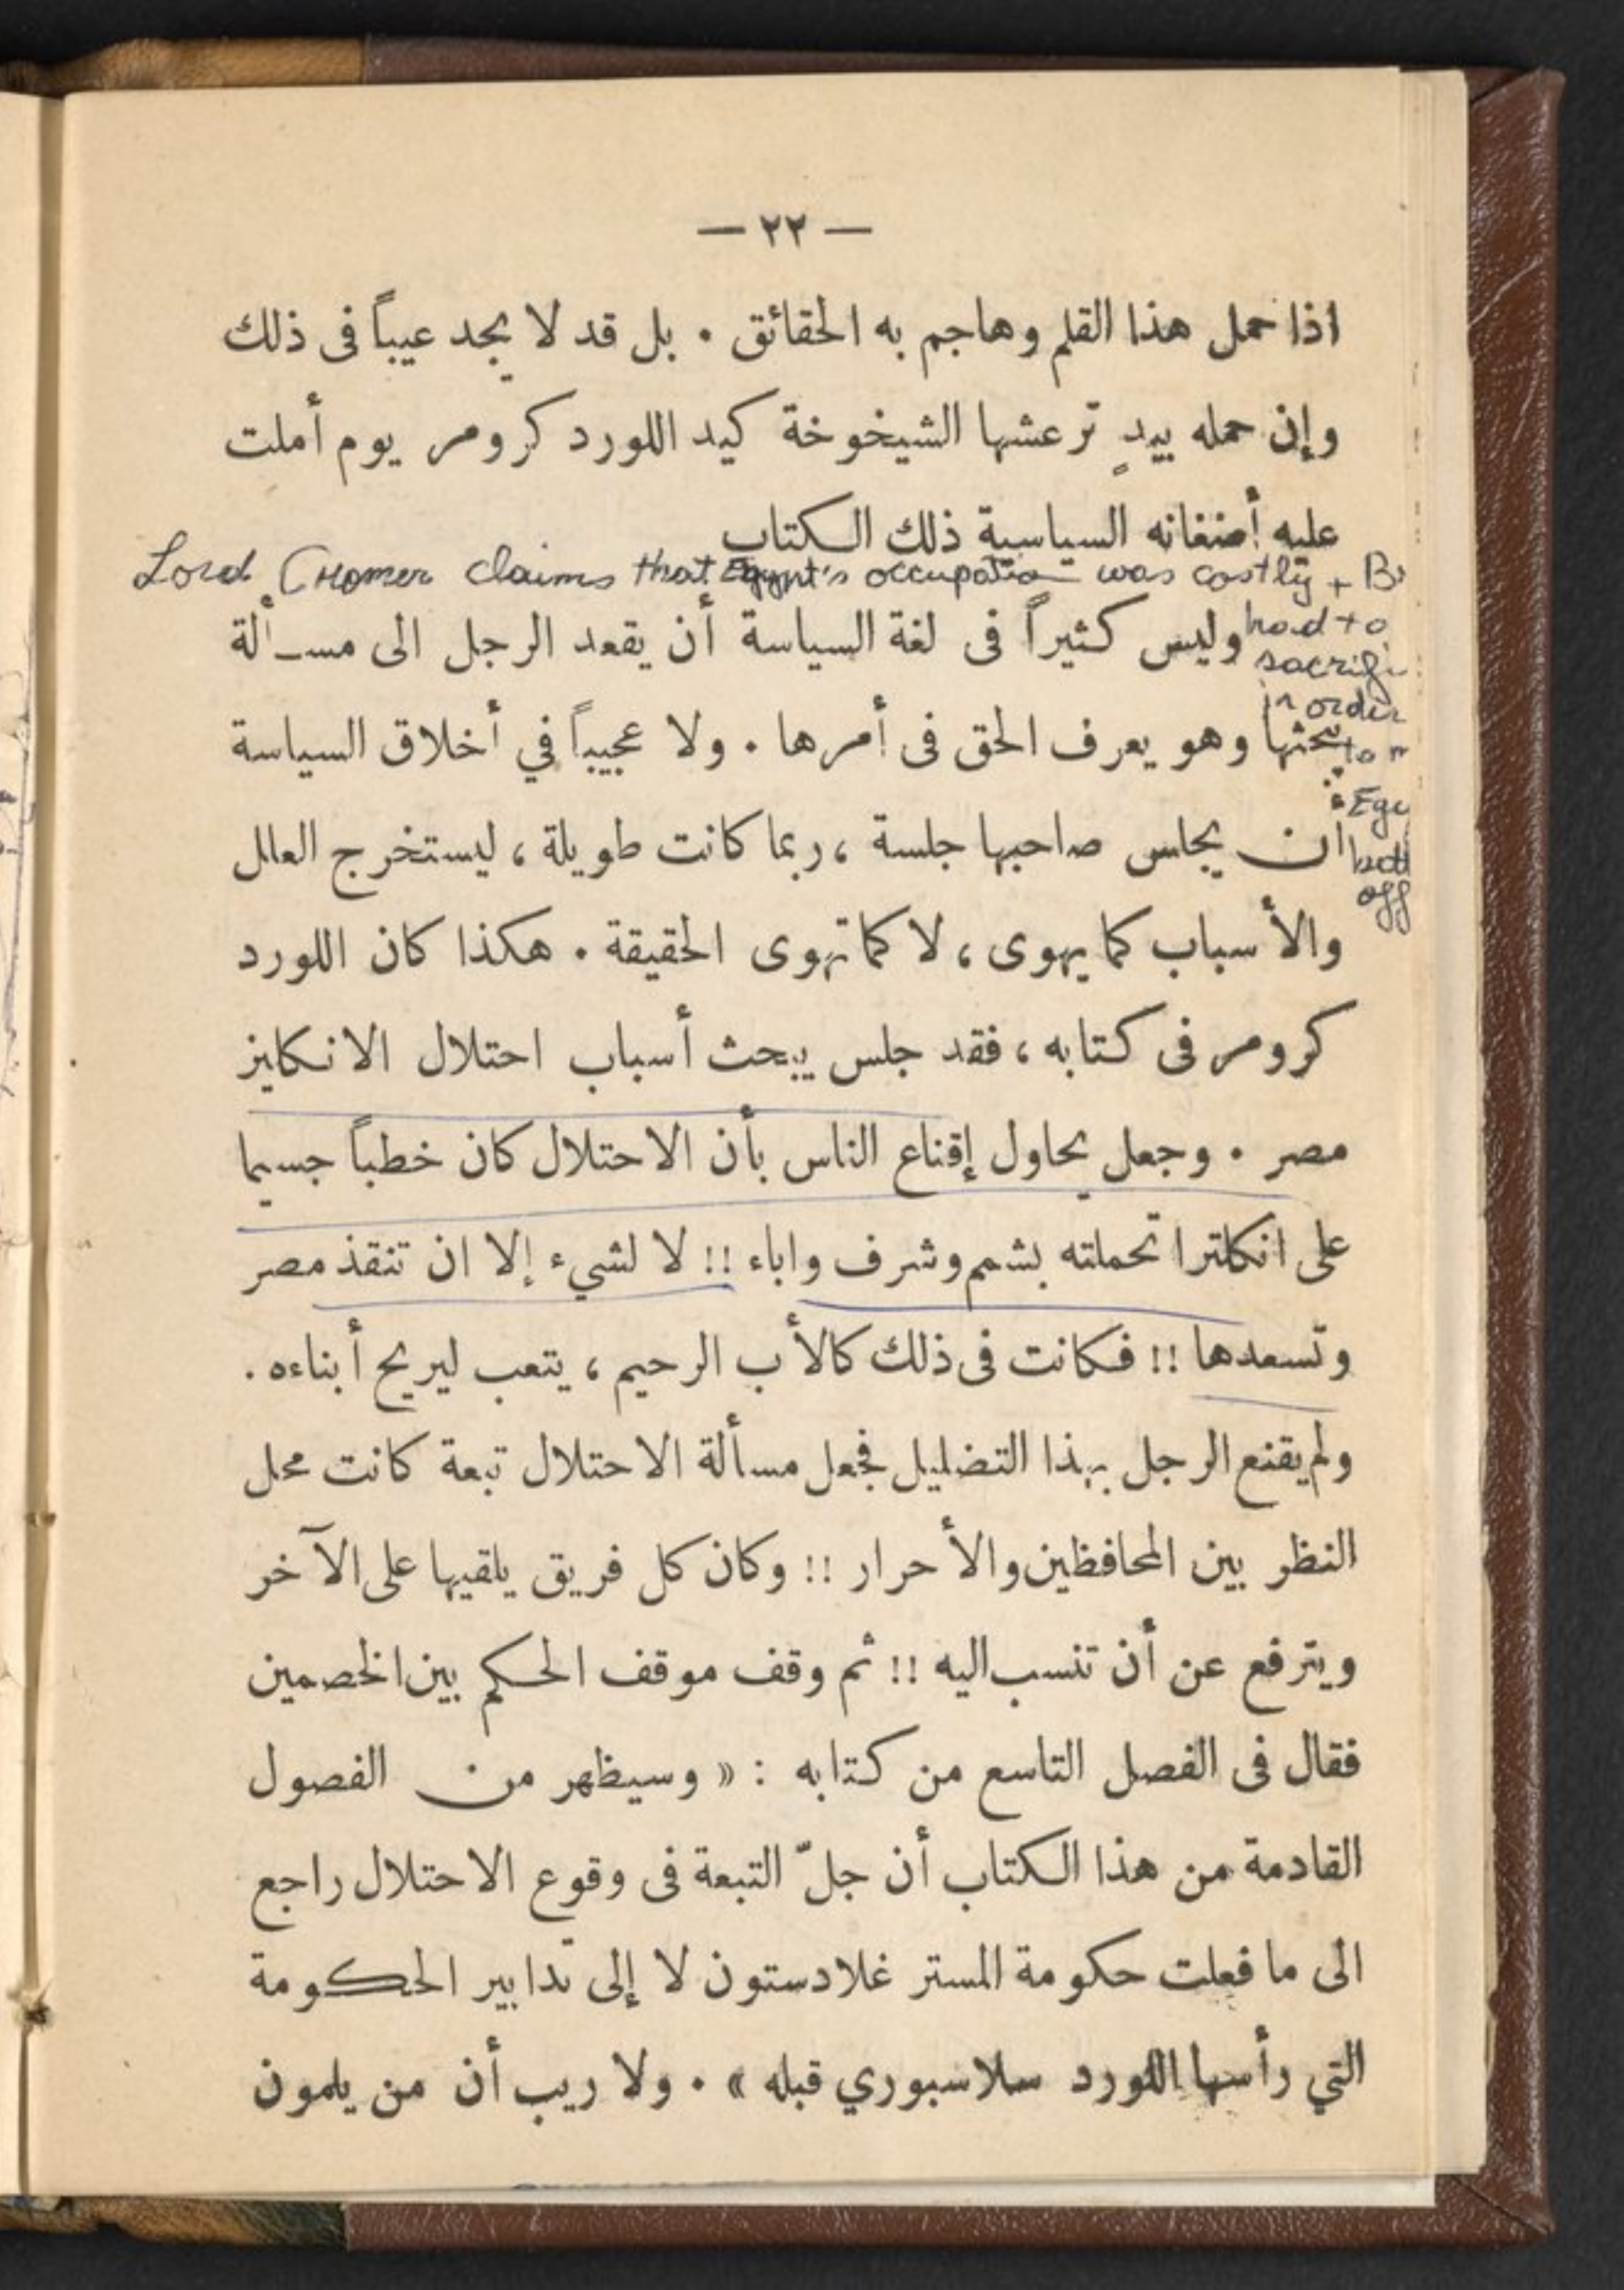 — ٢٢ —
اذا حمل هذا القلم وهاجم به الحقائق . بل قد لا يجد عيباً فى ذلك
وإن حمله بيدٍ ترعشها الشيخوخة كيد اللورد كرومر يوم أملت
عليه أضغانه السياسية ذلك الكتاب
Lord Cromer claims that Egypt's occupation was costly +
had to
in order
to
off
وليس كثيراً فى لغة السياسة أن يقعد الرجل الى مسألة
يبحثها وهو يعرف الحق فى أمرها . ولا عجيباً في أخلاق السياسة
أن يجلس صاحبها جلسة ، ربما كانت طويلة ، ليستخرج العلل
والأسباب كما يهوى ، لا كما تهوى الحقيقة . هكذا كان اللورد
كرومر فى كتابه ، فقد جلس يبحث أسباب احتلال الانكليز
مصر . وجعل يحاول إقناع الناس بأن الاحتلال كان خطباً جسيما
على انكلترا تحملته بشمم وشرف واباء !! لا لشيء إلا ان تنقذ مصر
وتسعدها !! فكانت فى ذلك كالأب الرحيم ، يتعب ليريح أبناءه .
ولم يقنع الرجل بهذا التضليل فجعل مسألة الاحتلال تبعة كانت محل
النظر بين المحافظين والأحرار !! وكان كل فريق يلقيها على الآخر
ويترفع عن أن تنسب اليه !! ثم وقف موقف الحكم بين الخصمين
فقال فى الفصل التاسع من كتابه : « وسيظهر من الفصول
القادمة من هذا الكتاب أن جلّ التبعة فى وقوع الاحتلال راجع
الى ما فعلت حكومة المستر غلادستون لا إلى تدابير الحكومة
التي رأسها اللورد سلاسبوري قبله » . ولا ريب أن من يلمون